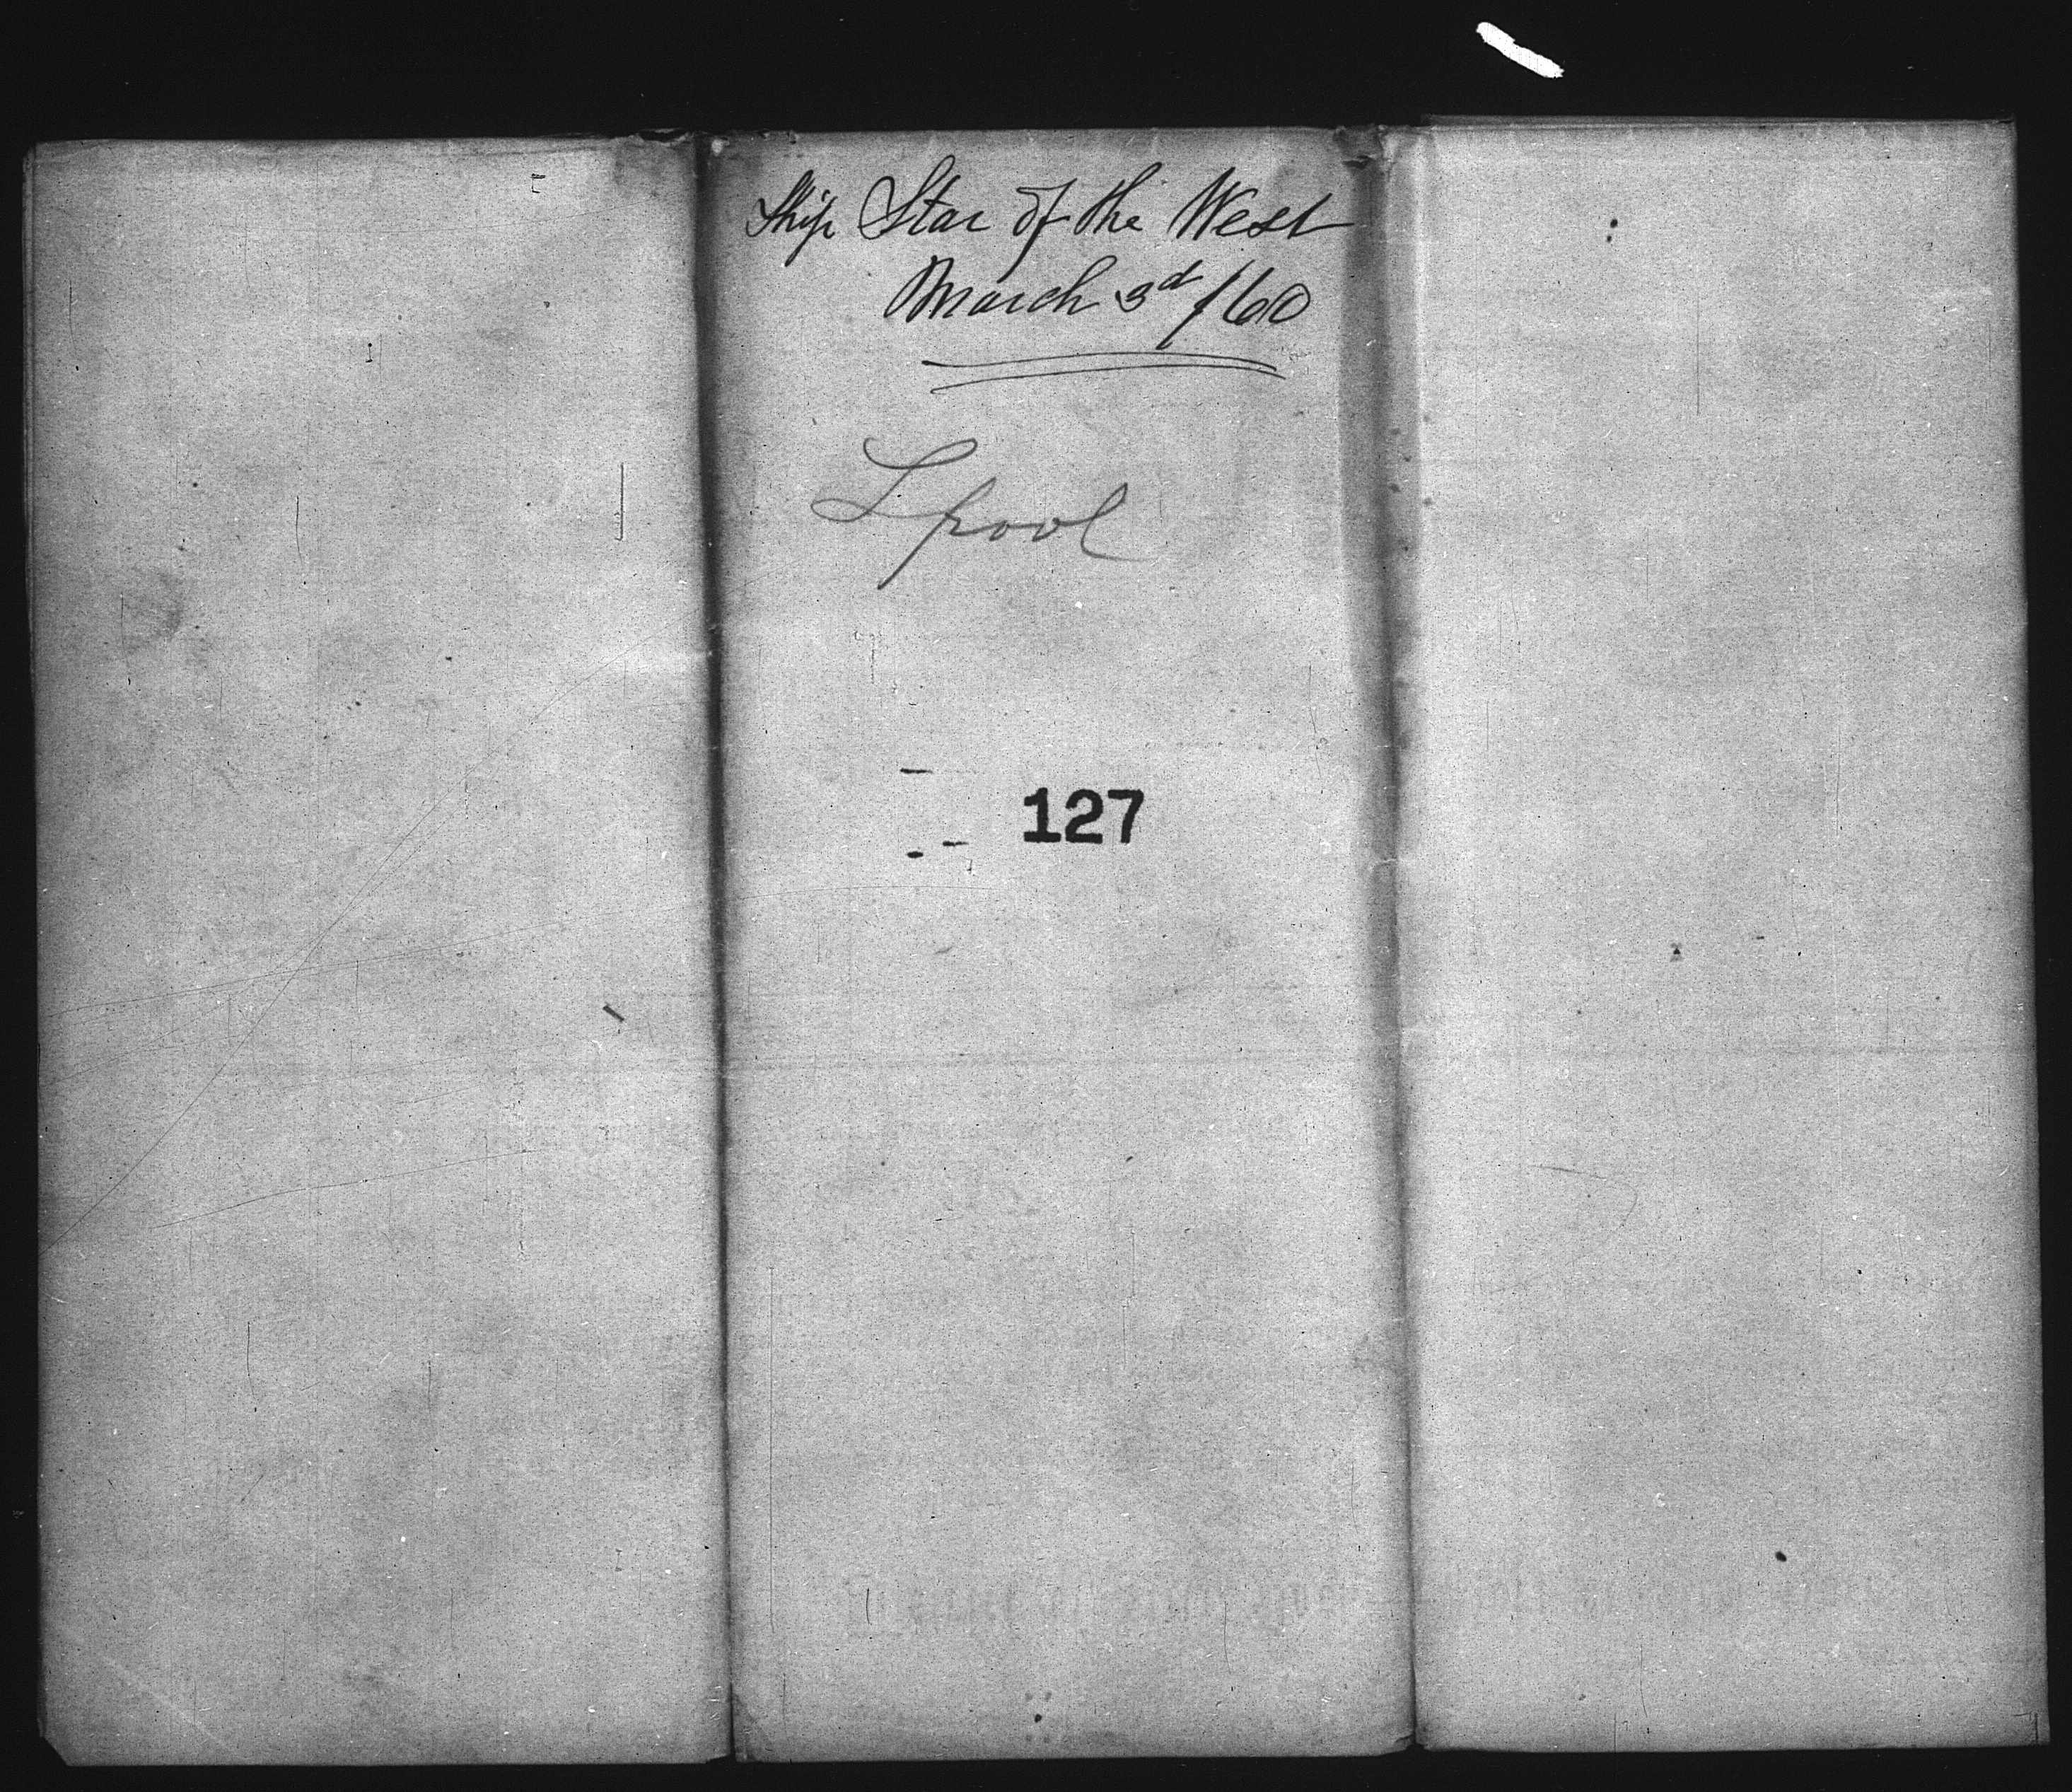 Ship Star of the West
March 3d /60
Lpool
127